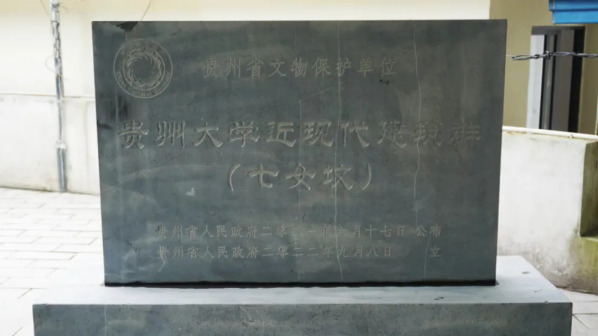 贵州省文物保护单位
贵州大学近现代建筑群
（七女坟）
贵州省人民政府二零二一年 月十七日 公布
贵州省人民政府二零二二年九月八日 立